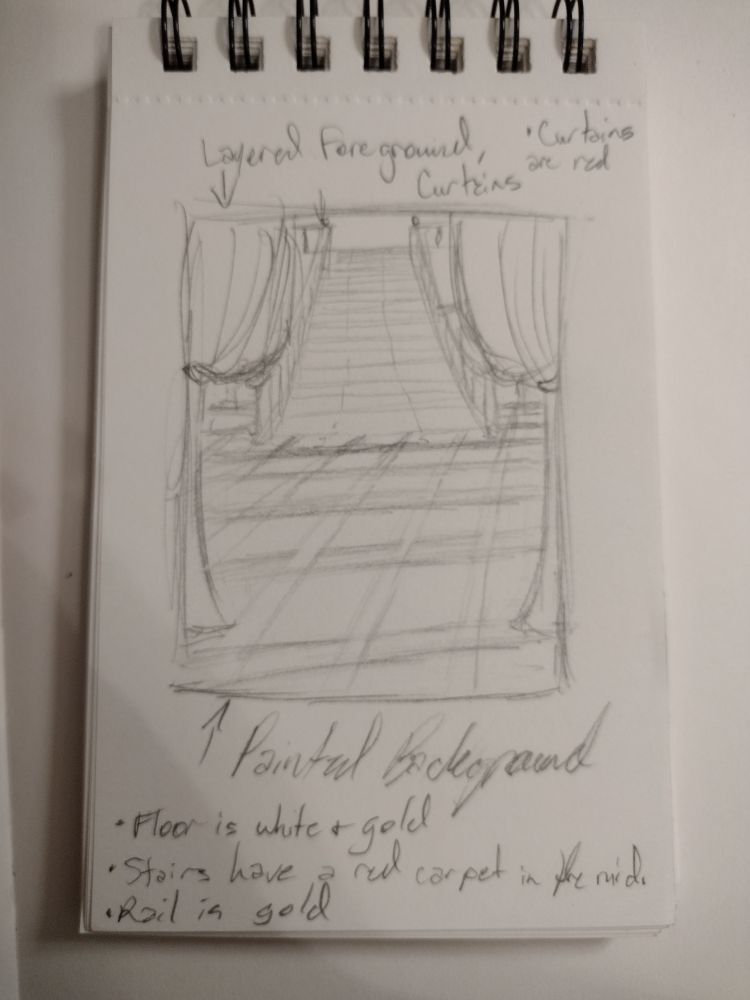 Layered Foreground,
Curtains
• Curtains
are red
Painted Background
• Floor is white + gold
• Stairs have a red carpet in the mid.
• Rail is gold